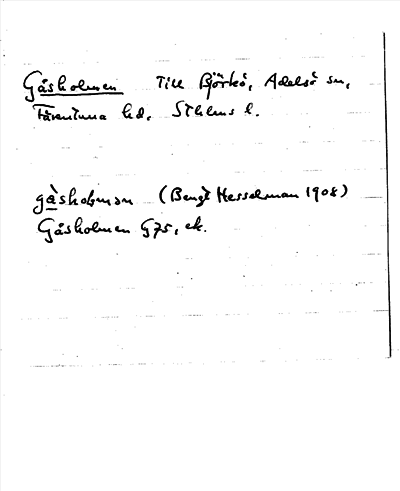 Gåsholmen Till Björkö, Adelsö sn,
Färentuna hd, Sthlms l.
gàshoḷmən (Bengt Hesselman 1908)
Gåsholmen G75, ek.